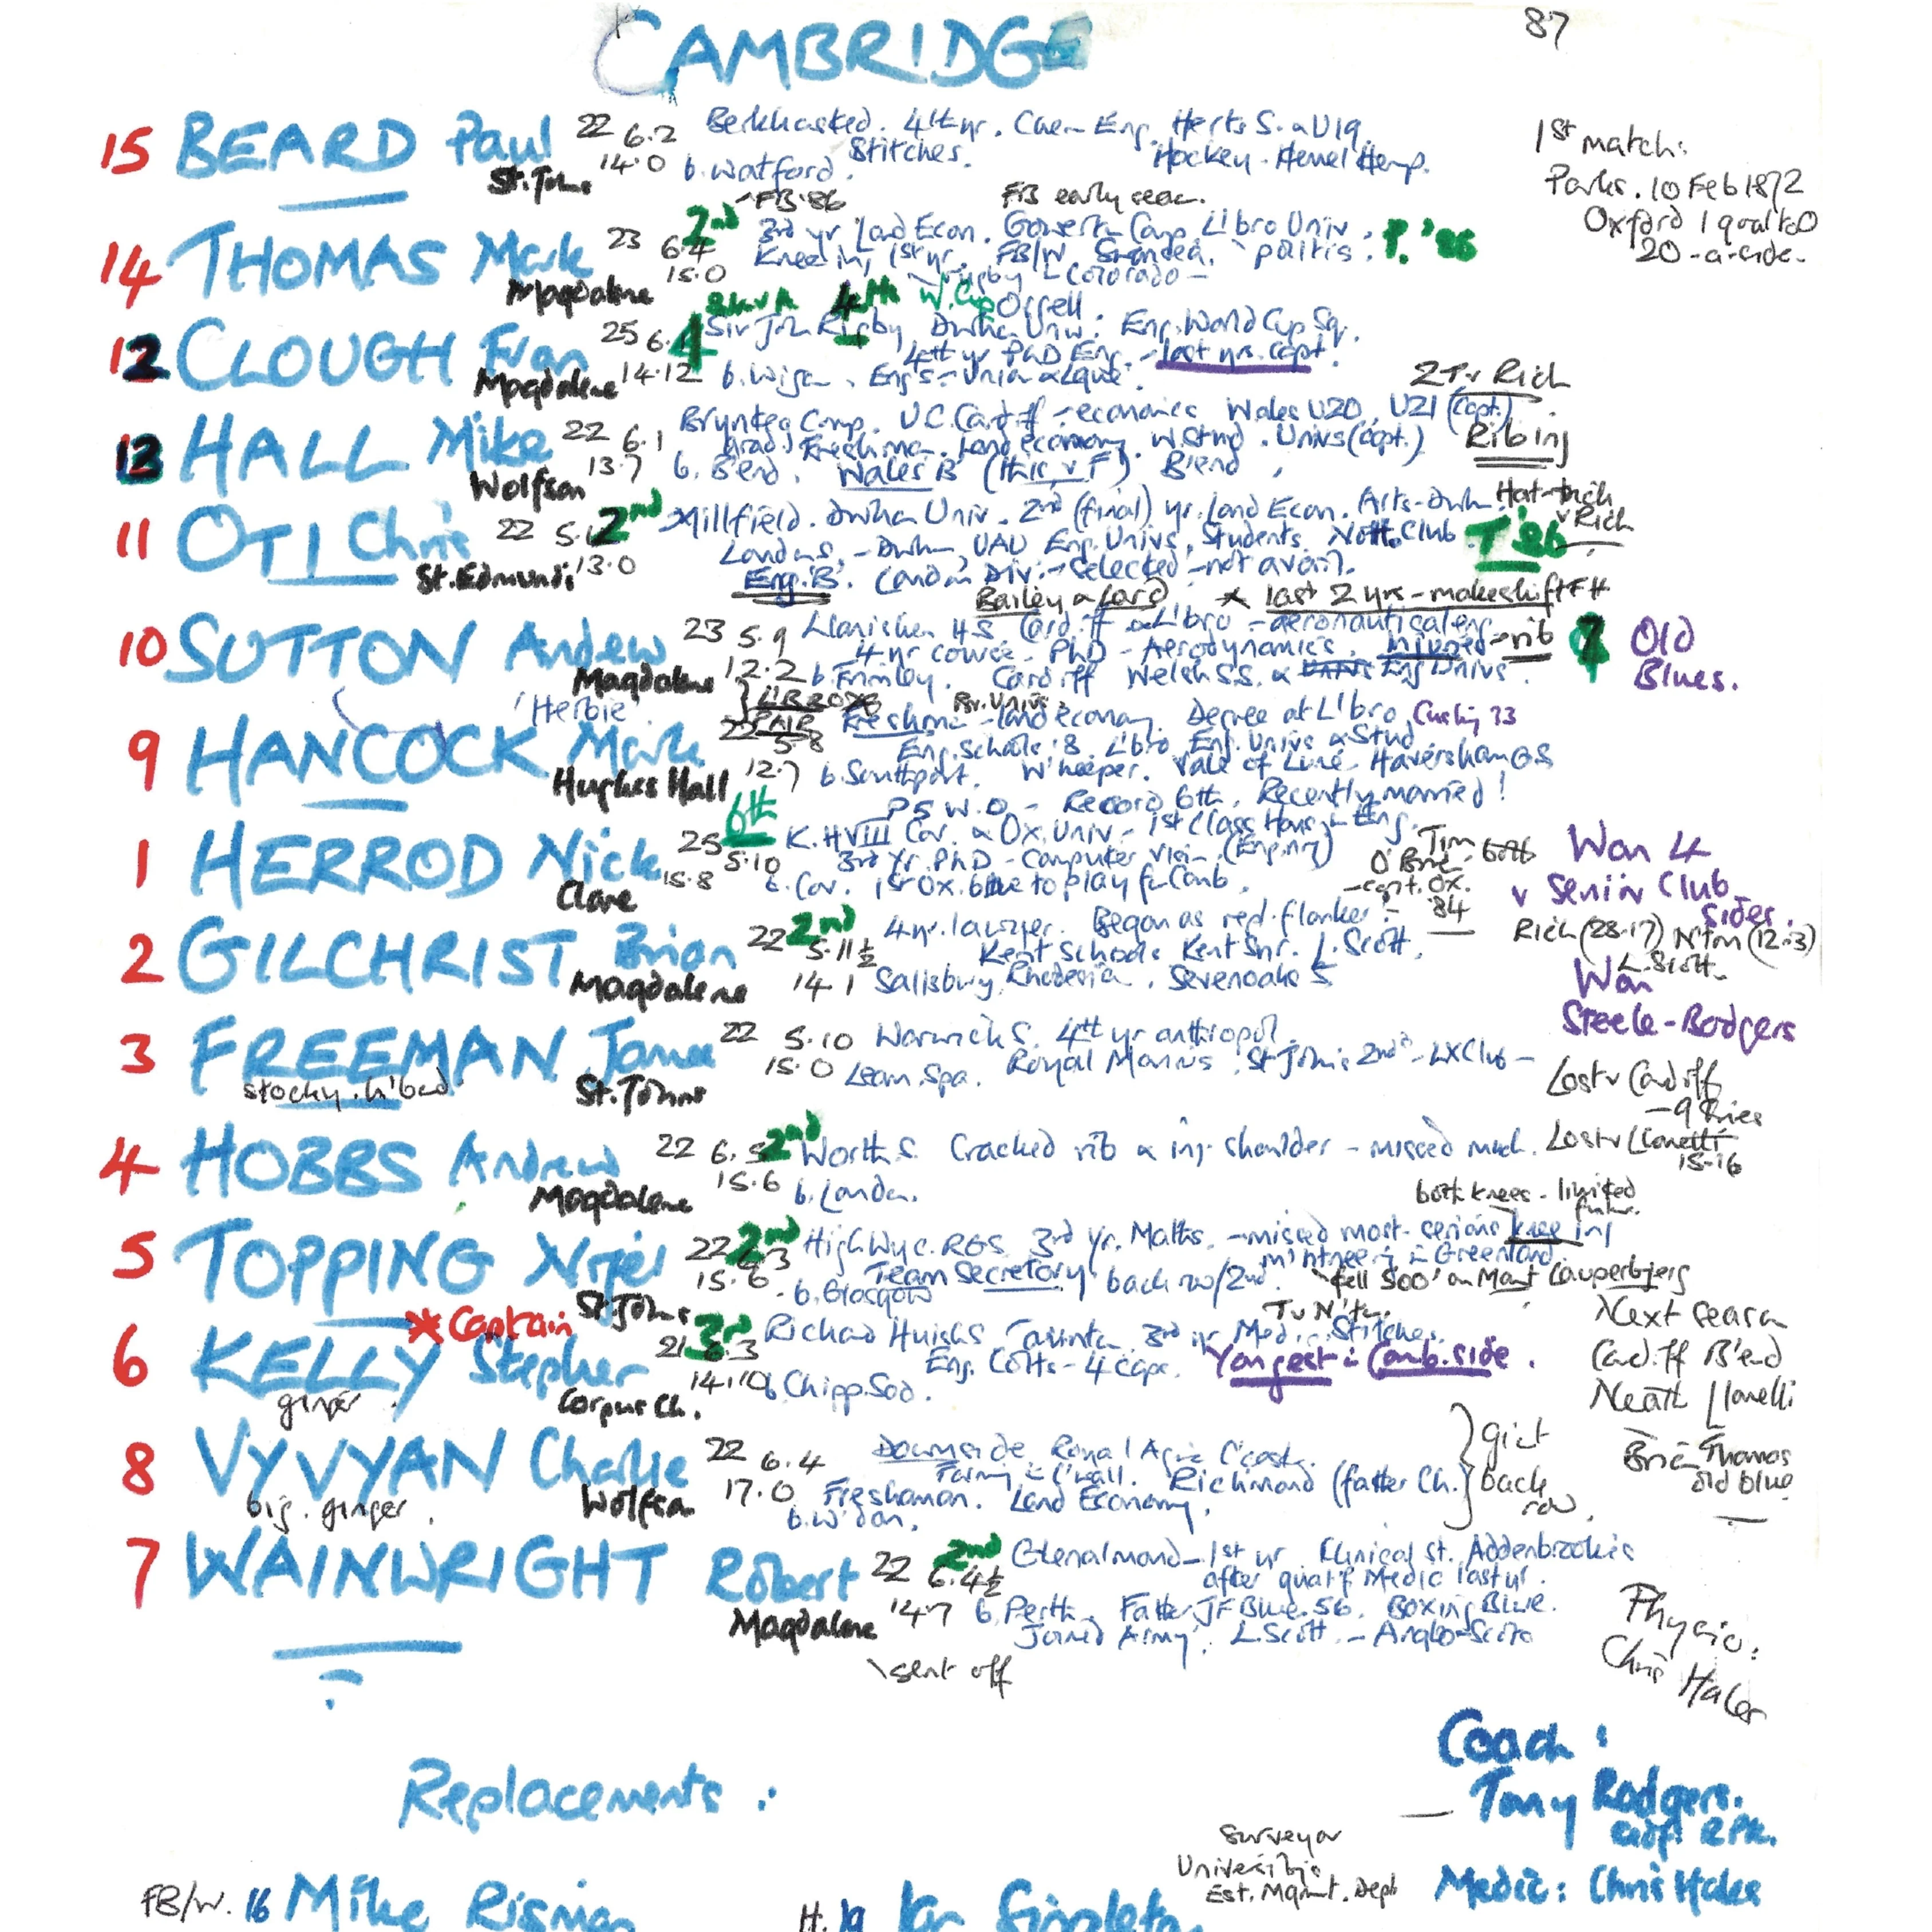 CAMBRIDGE
87
15 BEARD Paul 22 6.2 Berkhamsted. 4th yr. Chem Eng. Herts S. & U19.
St. Johns 14.0 b. Watford. Stitches. Hockey - Hemel Hemp.
1st match:
Parks. 10 Feb 1872
Oxford 1 goal to 0
20-a-side.
FB '86 FB early seas.
14 THOMAS Mark 23 6.4 2nd 3rd yr Land Econ. Gowerton Comp L'bro Univ. P. '86
Magdalene 15.0 Knee inj 1st yr. FB/W. politis.
rugby Colorado
4th W. Cup Orrell.
12 CLOUGH Fran 25 6.1 4 Sir John Rigby, Durham Univ. Eng. World Cup Sq.
Magdalene 14.12 4th yr PhD Eng. - last yrs. capt.
b. Wigan. Eng S. - Union & League.
2T v Rich
13 HALL Mike 22 6.1 Brynteg Comp. U.C. Cardiff - economics Wales U20, U21 (Capt.)
Wolfson 13.7 Grad. Freshman. Land economy. W. Stud. Univs (capt.) Rib inj
b. B'end. Wales B (this v F) B'end
11 OTI Chris 22 5.11 2nd Millfield. Durham Univ. 2nd (final) yr. Land Econ. Arts - Durh. Hat-trick v Rich
St. Edmunds 13.0 London S. - Durh, UAU Eng. Univs, Students. Nott. Club T '86
Eng. B. London Div. - selected - not avail.
Bailey & Lord * last 2 yrs - makeshift FH
10 SUTTON Andrew 23 5.9 Llanishen H.S. Cardiff & L'bro - aeronautical eng.
Magdalene 12.2 4 yr course. PhD - Aerodynamics. Injured - rib
b. Frimley. Cardiff Welsh S.S. & Eng Univs.
7 Old
Blues.
'Herbie' L'BORO PAIR Br. Univs.
9 HANCOCK Mark 22 5.8 Freshman - land economy. Degree at L'bro
Hughes Hall 12.7 Eng. Schools 18. L'bro Eng. Univs & Stud
b. Southport. W'keeper. Vale of Lune. Haversham GS
PS W.O - Record 6th. Recently married!
1 HERROD Nick 25 5.10 6th K. H VIII Cov. & Ox. Univ - 1st Class Hons in Eng.
Clare 15.8 3rd Yr. PhD - Computer Vision (Enging)
b. Cov. 1st Ox. blue to play for Camb.
Tim O'Brien both
- capt. Ox. '84
Won 4
v Senior Club
sides.
Rich (28-17) N'tm (12-3)
L. Scott.
2 GILCHRIST Brian 22 5.11½ 2nd 4 yr. lawyer. Began as red. flanker.
Magdalene 14.1 Kent Schools Kent Snr. L. Scott.
Salisbury, Rhodesia. Sevenoaks S
Won
Steele-Bodgers
3 FREEMAN James 22 5.10 Warwick S. 4th yr anthropol.
stocky. h'bad St. Johns 15.0 Leam. Spa. Royal Marines. St John's 2nd - LX Club -
Lost v Cardiff
- 9 tries
4 HOBBS Andrew 22 6.5 2nd Worth S. Cracked rib & inj. shoulder - missed much.
Magdalene 15.6 b. London.
Lost v Llanelli
15-16
both knees - limited future.
5 TOPPING Nigel 22 6.3 2nd High Wyc. RGS 3rd yr. Maths. - missed most - serious knee inj
St. Johns 15.6 Team Secretary back row/2nd. m'ntneering in Greenland
b. Glasgow fell 500' on Mont Cauperbjerg
* Captain
T v N'tn.
6 KELLY Stephen 21 6.3 3rd Richard Huish S Taunton. 3rd yr Med. Stitches.
ginger Corpus Ch. 14.10 Eng. Colts - 4 caps. Youngest in Camb. side.
b. Chipp. Sod.
Next season
Cardiff B'end
Neath Llanelli
Brian Thomas
old blue
8 VYVYAN Charlie 22 6.4 Downside Royal Agric C'cest.
big. ginger. Wolfson 17.0 Farming in C'wall. Richmond (father Ch.)
Freshman. Land Economy.
b. W'don.
giant
back
row.
7 WAINWRIGHT Robert 22 6.4½ 2nd Glenalmond - 1st yr Clinical st. Addenbrooke's
Magdalene 14.7 after qualif Medic last yr.
b. Perth. Father JF Blue. 56. Boxing Blue.
Joined Army. L. Scott. - Anglo-Scots
sent off
Physio:
Chris Hales
Replacements:
Coach:
Tony Rodgers.
Surveyor
Est. Mgmt. Dept
Medic: Chris Hales
FB/W. 16 Mike Risman
H. 19 Ian Singleton